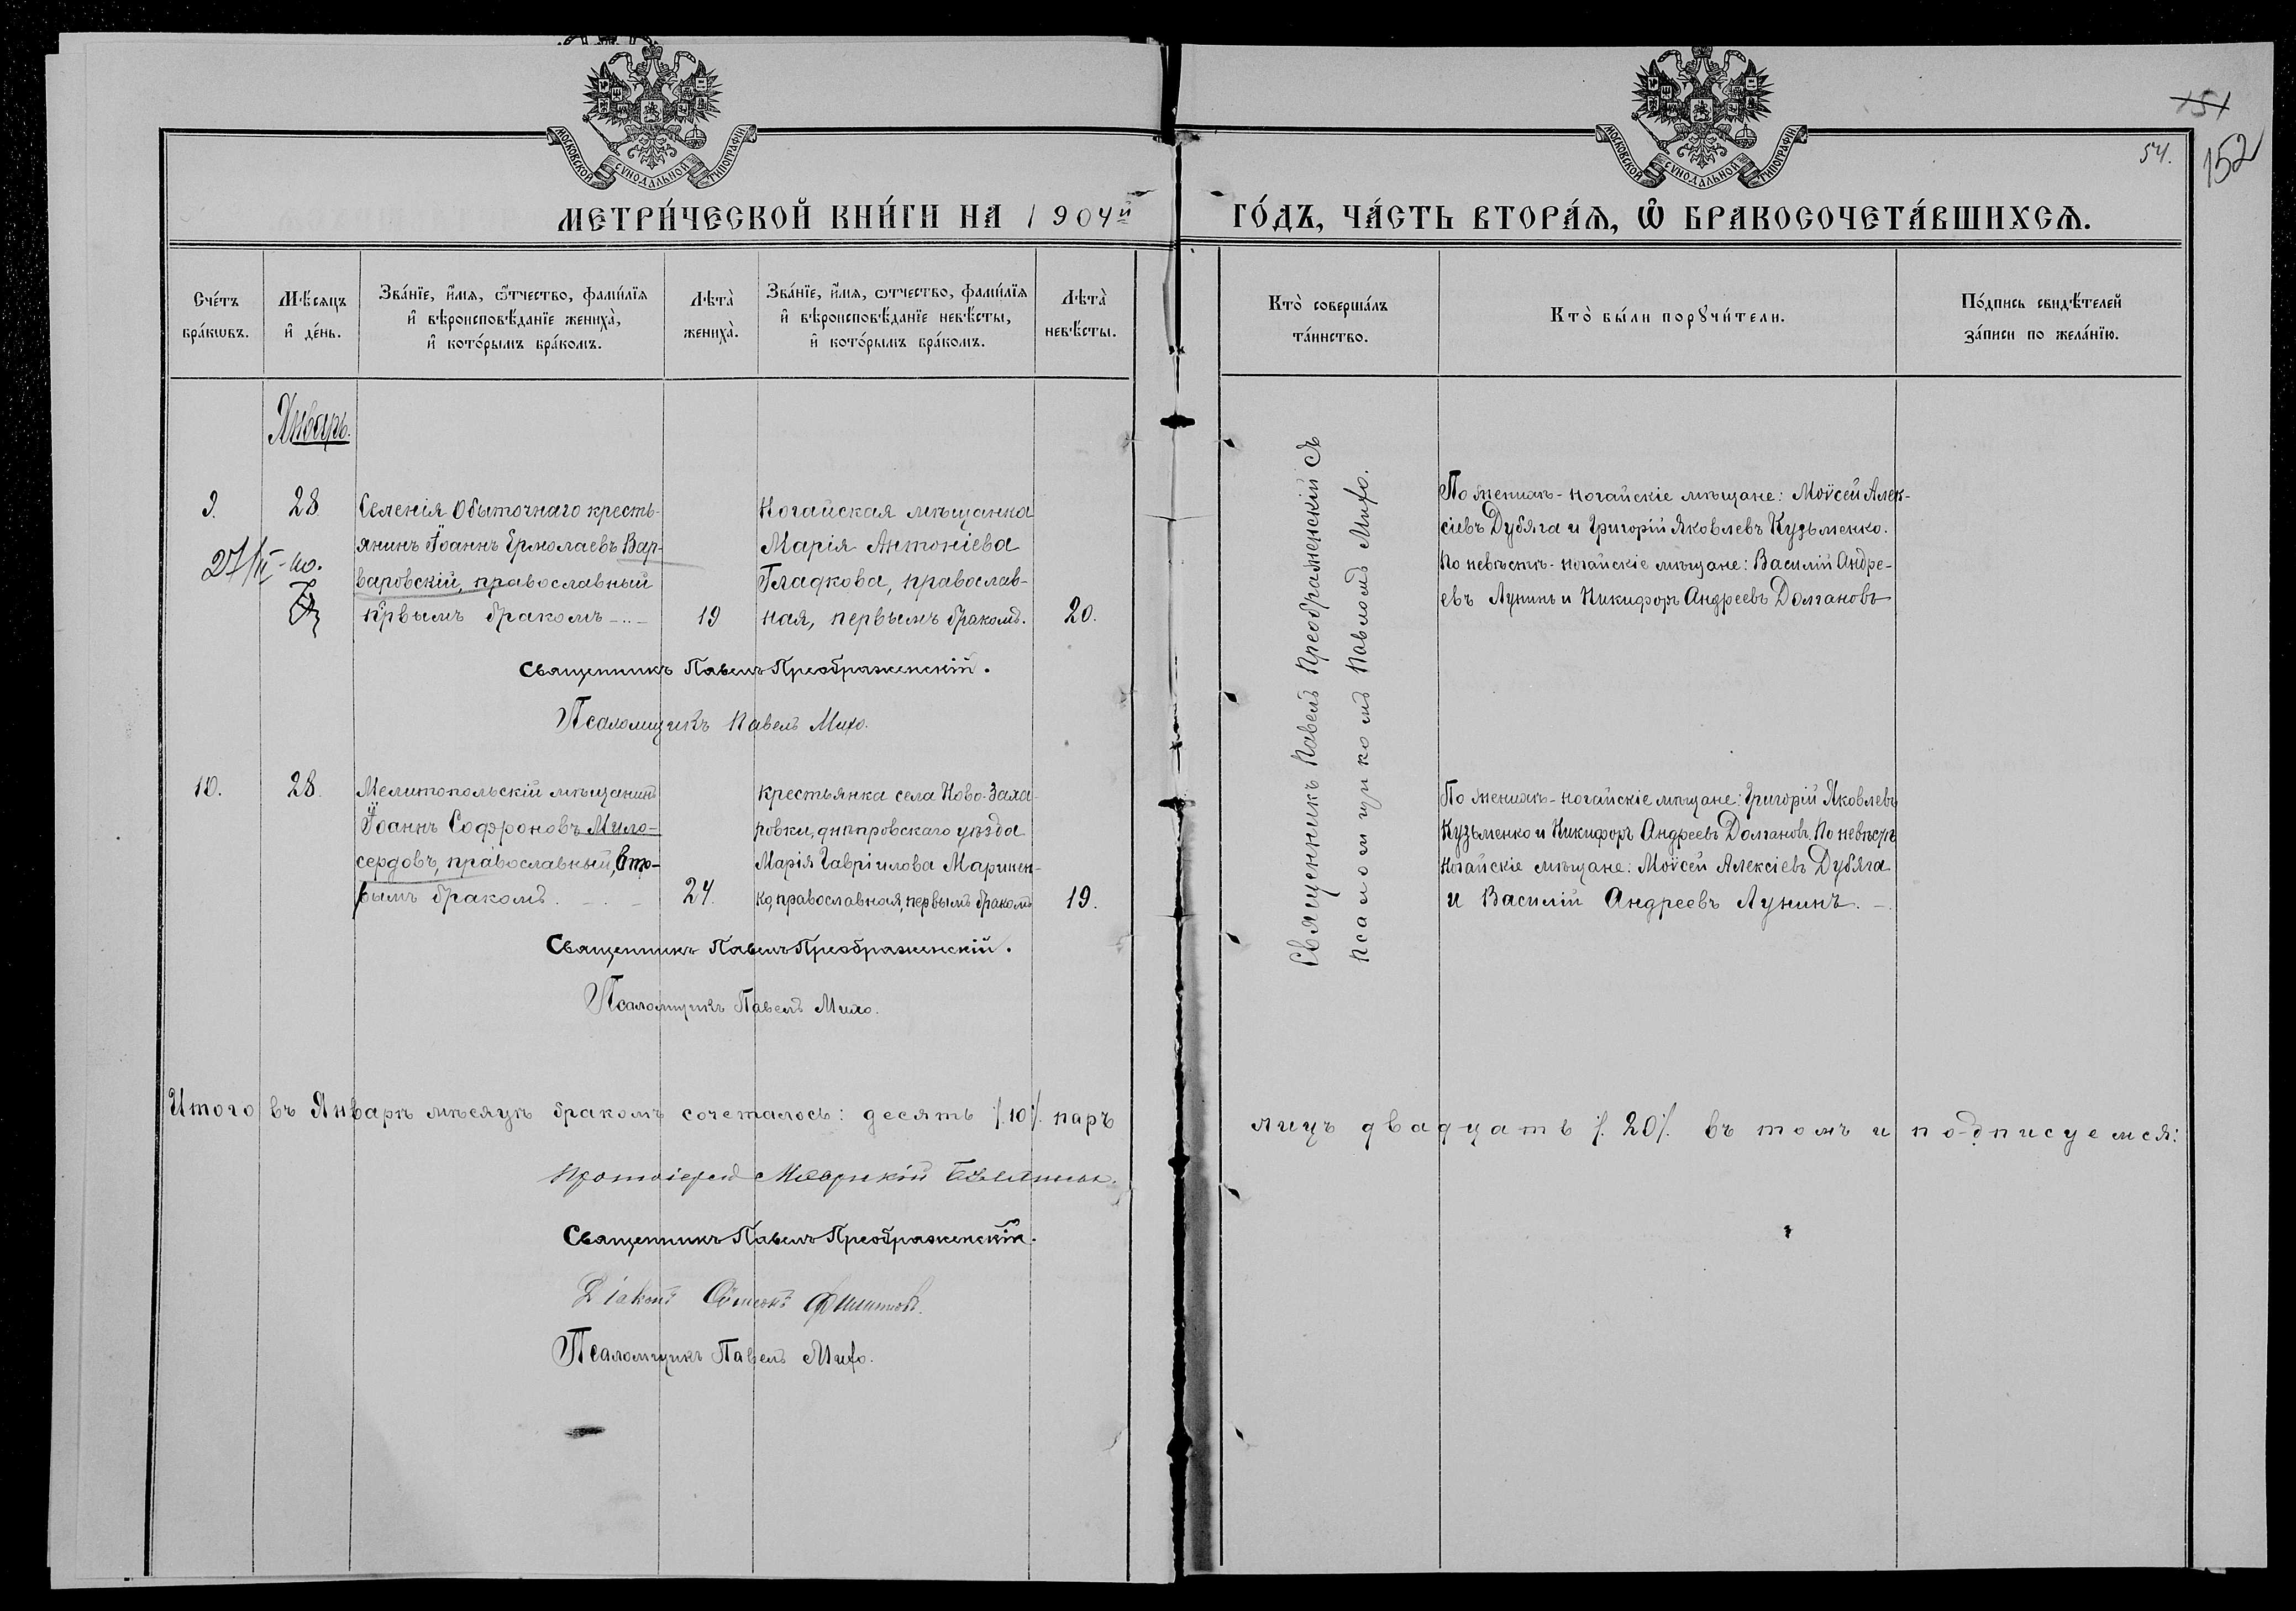 МОСКОВСКОЙ СѴНОДАЛЬНОЙ ТИПОГРАФІИ
МОСКОВСКОЙ СѴНОДАЛЬНОЙ ТИПОГРАФІИ
151
152
54.
МЕТРИ́ЧЕСКОЙ КНИ́ГИ НА 1904й
ГО́ДЪ, ЧА́СТЬ ВТОРА́Ѧ, Ѡ҆ БРАКОСОЧЕТА́ВШИХСѦ.
Сче́тъ
бра́кѡвъ.
Мѣ́сѧцъ
и҆ де́нь.
Зва́нїе, и҆́мѧ, ѻ҆́тчество, фамѝлїѧ
и҆ вѣроисповѣ́данїе жениха̀,
и҆ кото́рымъ бра́комъ.
Лѣта̀
жениха̀.
Зва́нїе, и҆́мѧ, ѻ҆тчество, фамѝлїѧ
и҆ вѣроисповѣ́данїе невѣ́сты,
и҆ кото́рымъ бра́комъ.
Лѣта̀
невѣ́сты.
Кто̀ соверша́лъ
та́инство.
Кто̀ бы́ли порꙋчи́тели.
По́дпись свидѣ́телей
за́писи по жела́нїю.
Январь.
9.
28.
Селенія Обыточнаго кресть-
янинъ Іоаннъ Ермолаевъ Вар-
варовскій, православный
првымъ бракомъ
19
Ногайская мѣщанка
Марія Антоніева
Гладкова, православ-
ная, первымъ бракомъ.
20.
27/II
Священникъ Павелъ Преображенскій.
Псаломщикъ Павелъ Михо.
Священникъ Павелъ Преображенскій съ
псаломщикомъ Павломъ Михо.
По женихѣ - ногайскіе мѣщане: Моѵсей Алек-
сіевъ Дубяга и Григорій Яковлевъ Кузьменко.
По невѣстѣ - ногайскіе мѣщане: Василій Андре-
евъ Лунинъ и Никифоръ Андреевъ Долгановъ
10.
28.
Мелитопольскій мѣщанинъ
Іоаннъ Софроновъ Мило-
сердовъ, православный, вто-
рымъ бракомъ.
24.
крестьянка села Ново-Заха-
ровки, днѣпровскаго уѣзда
Марія Гавріилова Маринен-
ко, православная, первымъ бракомъ
19.
По женихѣ - ногайскіе мѣщане: Григорій Яковлевъ
Кузьменко и Никифоръ Андреевъ Долгановъ. По невѣстѣ
ногайскіе мѣщане: Моѵсей Алексіевъ Дубяга
и Василій Андреевъ Лунинъ. —
Священникъ Павелъ Преображенскій.
Псаломщикъ Павелъ Михо.
Итого въ Январѣ мѣсяцѣ бракомъ сочеталось: десять /.10/. паръ
лицъ двадцать /. 20/. въ томъ и подписуемся:
Протоіерей Маврикій
Священникъ Павелъ Преображенскій.
Діаконъ Симеонъ Филиповъ.
Псаломщикъ Павелъ Михо.